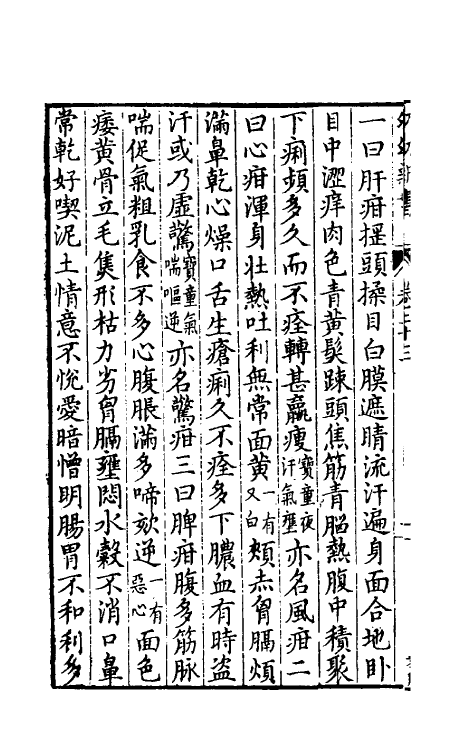 一曰肝疳揺頭揉目白膜遮睛流汗遍身面合地卧
目中澁痒肉色青黄髮踈頭焦筋青腦熱腹中積聚
下痢頻多久而不痊轉甚羸瘦寶童夜汗氣壅亦名風疳二
曰心疳渾身壮熱吐利無常面黄一有又白頰赤胷膈煩
滿鼻乾心燥口舌生瘡痢久不痊多下膿血有時盗
汗或乃虚驚寶童氣喘嘔逆亦名驚疳三曰脾疳腹多筋脉
喘促氣粗乳食不多心腹脹滿多啼欬逆一有惡心面色
痿黄骨立毛𤍞形枯力劣胷膈壅悶水糓不消口鼻
常乾好喫泥土情意不悅愛暗憎明腸胃不和利多
幼幼新書 卷二十三